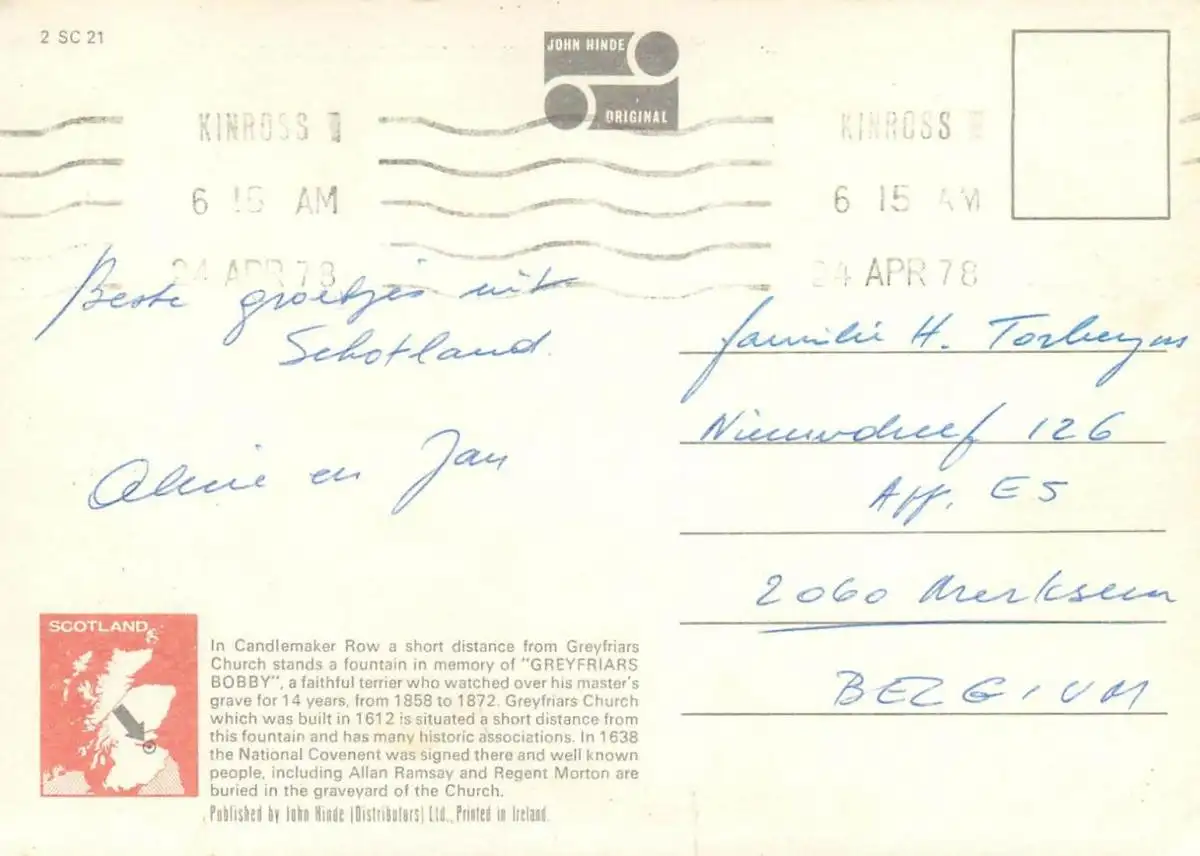 2 SC 21
JOHN HINDE
ORIGINAL
KINROSS
6 15 AM
24 APR 78
KINROSS
6 15 AM
24 APR 78
Beste groetjes uit
Schotland.
en Jan
familie H.
Nieuwdreef 126
App. E5
2060 Merksem
BELGIUM
SCOTLAND
In Candlemaker Row a short distance from Greyfriars
Church stands a fountain in memory of "GREYFRIARS
BOBBY", a faithful terrier who watched over his master's
grave for 14 years, from 1858 to 1872. Greyfriars Church
which was built in 1612 is situated a short distance from
this fountain and has many historic associations. In 1638
the National Covenent was signed there and well known
people, including Allan Ramsay and Regent Morton are
buried in the graveyard of the Church.
Published by John Hinde (Distributors) Ltd., Printed in Ireland.